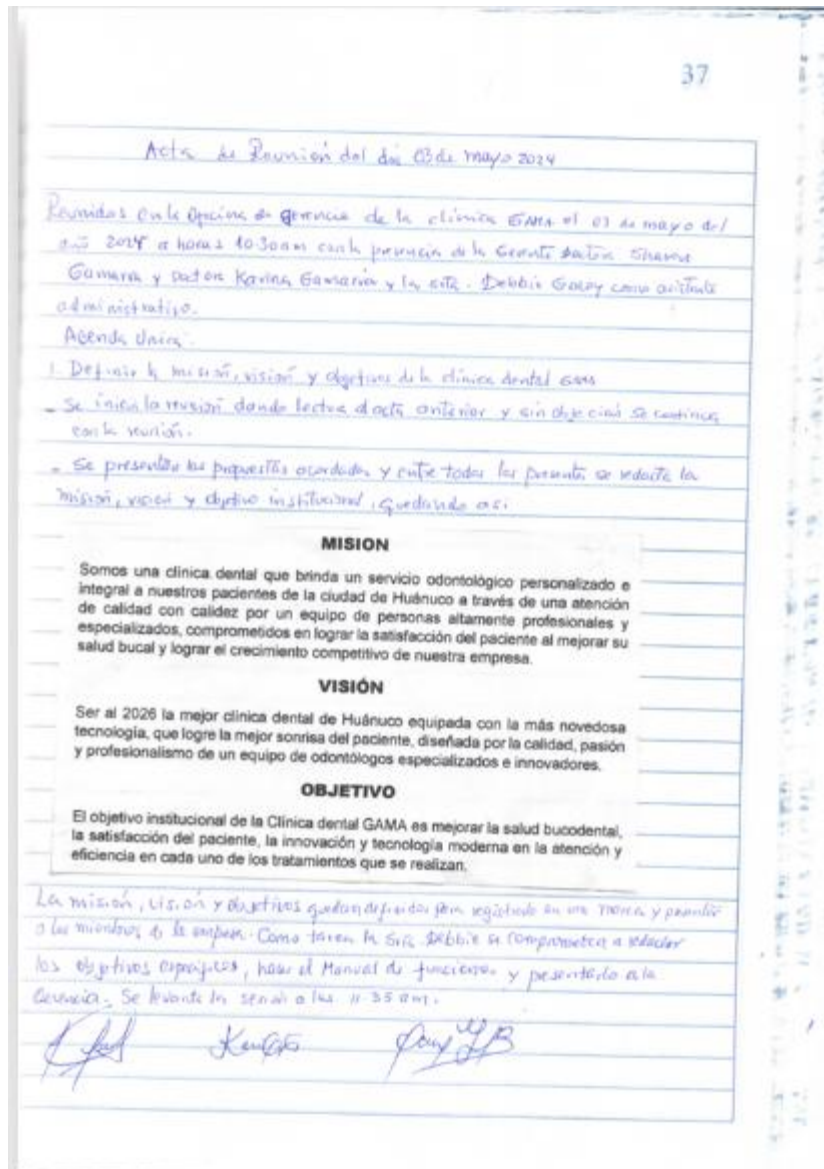 37
Acta de Reunión del día 03 de mayo 2024
Reunidos en la oficina de gerencia de la clínica GAMA el 03 de mayo del
año 2024 a horas 10:30am con la presencia de la Gerente Doctora
Gamarra y Doctora Karina Gamarra y la srta. Debbie como asistente
administrativo.
Agenda Única:
1. Definir la misión, visión y objetivos de la clínica dental GAMA
- Se inicia la reunión dando lectura al acta anterior y sin objeción se continua
con la reunión.
- Se presentan las propuestas acordadas y entre todos los presentes se redacta la
misión, visión y objetivo institucional, quedando así:
MISION
Somos una clínica dental que brinda un servicio odontológico personalizado e
integral a nuestros pacientes de la ciudad de Huánuco a través de una atención
de calidad con calidez por un equipo de personas altamente profesionales y
especializados, comprometidos en lograr la satisfacción del paciente al mejorar su
salud bucal y lograr el crecimiento competitivo de nuestra empresa.
VISIÓN
Ser al 2026 la mejor clínica dental de Huánuco equipada con la más novedosa
tecnología, que logre la mejor sonrisa del paciente, diseñada por la calidad, pasión
y profesionalismo de un equipo de odontólogos especializados e innovadores.
OBJETIVO
El objetivo institucional de la Clínica dental GAMA es mejorar la salud bucodental,
la satisfacción del paciente, la innovación y tecnología moderna en la atención y
eficiencia en cada uno de los tratamientos que se realizan.
La misión, visión y objetivos quedan definidos para en una y
a los miembros de la empresa. Como tarea la Srta. Debbie se compromete a redactar
los objetivos específicos, hacer el Manual de funciones y presentarlo a la
Gerencia. Se levanta la sesión a las 11:35 am.